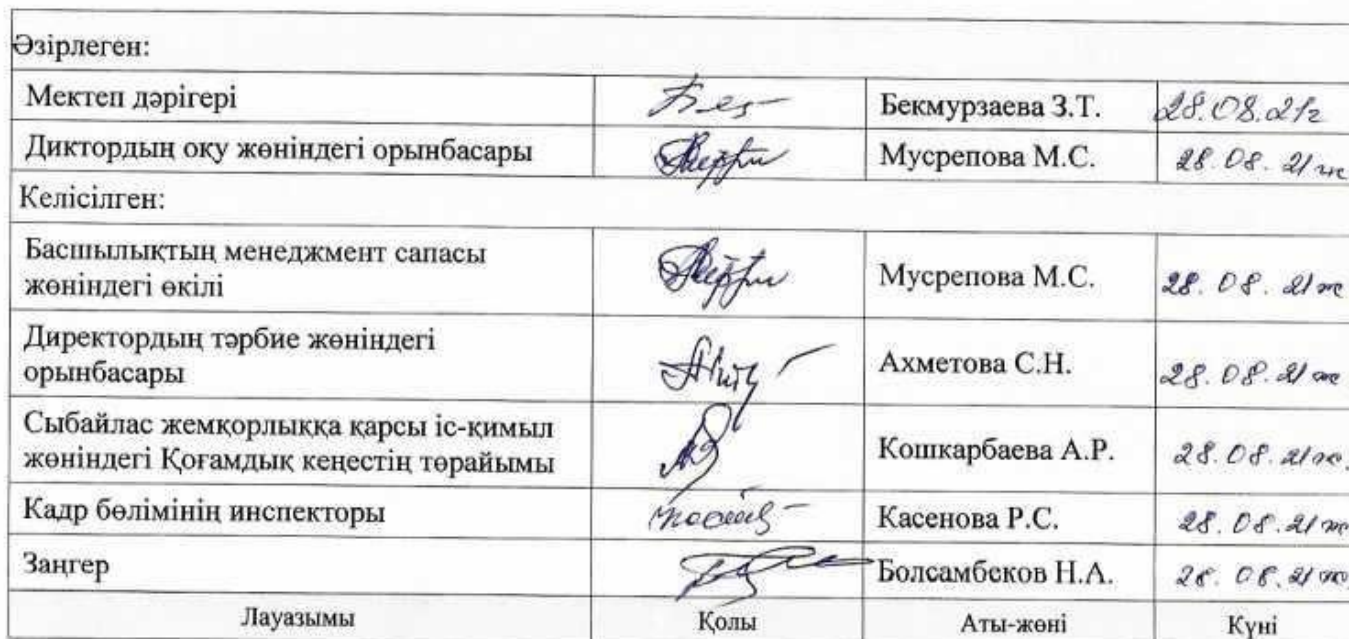 Әзірлеген:
Мектеп дәрігері Бекмурзаева З.Т. 28.08.21г
Диктордың оқу жөніндегі орынбасары Мусрепова М.С. 28.08.21ж
Келісілген:
Басшылықтың менеджмент сапасы
жөніндегі өкілі Мусрепова М.С. 28.08.21ж
Директордың тәрбие жөніндегі
орынбасары Ахметова С.Н. 28.08.21ж
Сыбайлас жемқорлыққа қарсы іс-қимыл
жөніндегі Қоғамдық кеңестің төрайымы Кошкарбаева А.Р. 28.08.21ж.
Кадр бөлімінің инспекторы Касенова Р.С. 28.08.21ж
Заңгер Болсамбеков Н.А. 28.08.21ж
Лауазымы Қолы Аты-жөні Күні